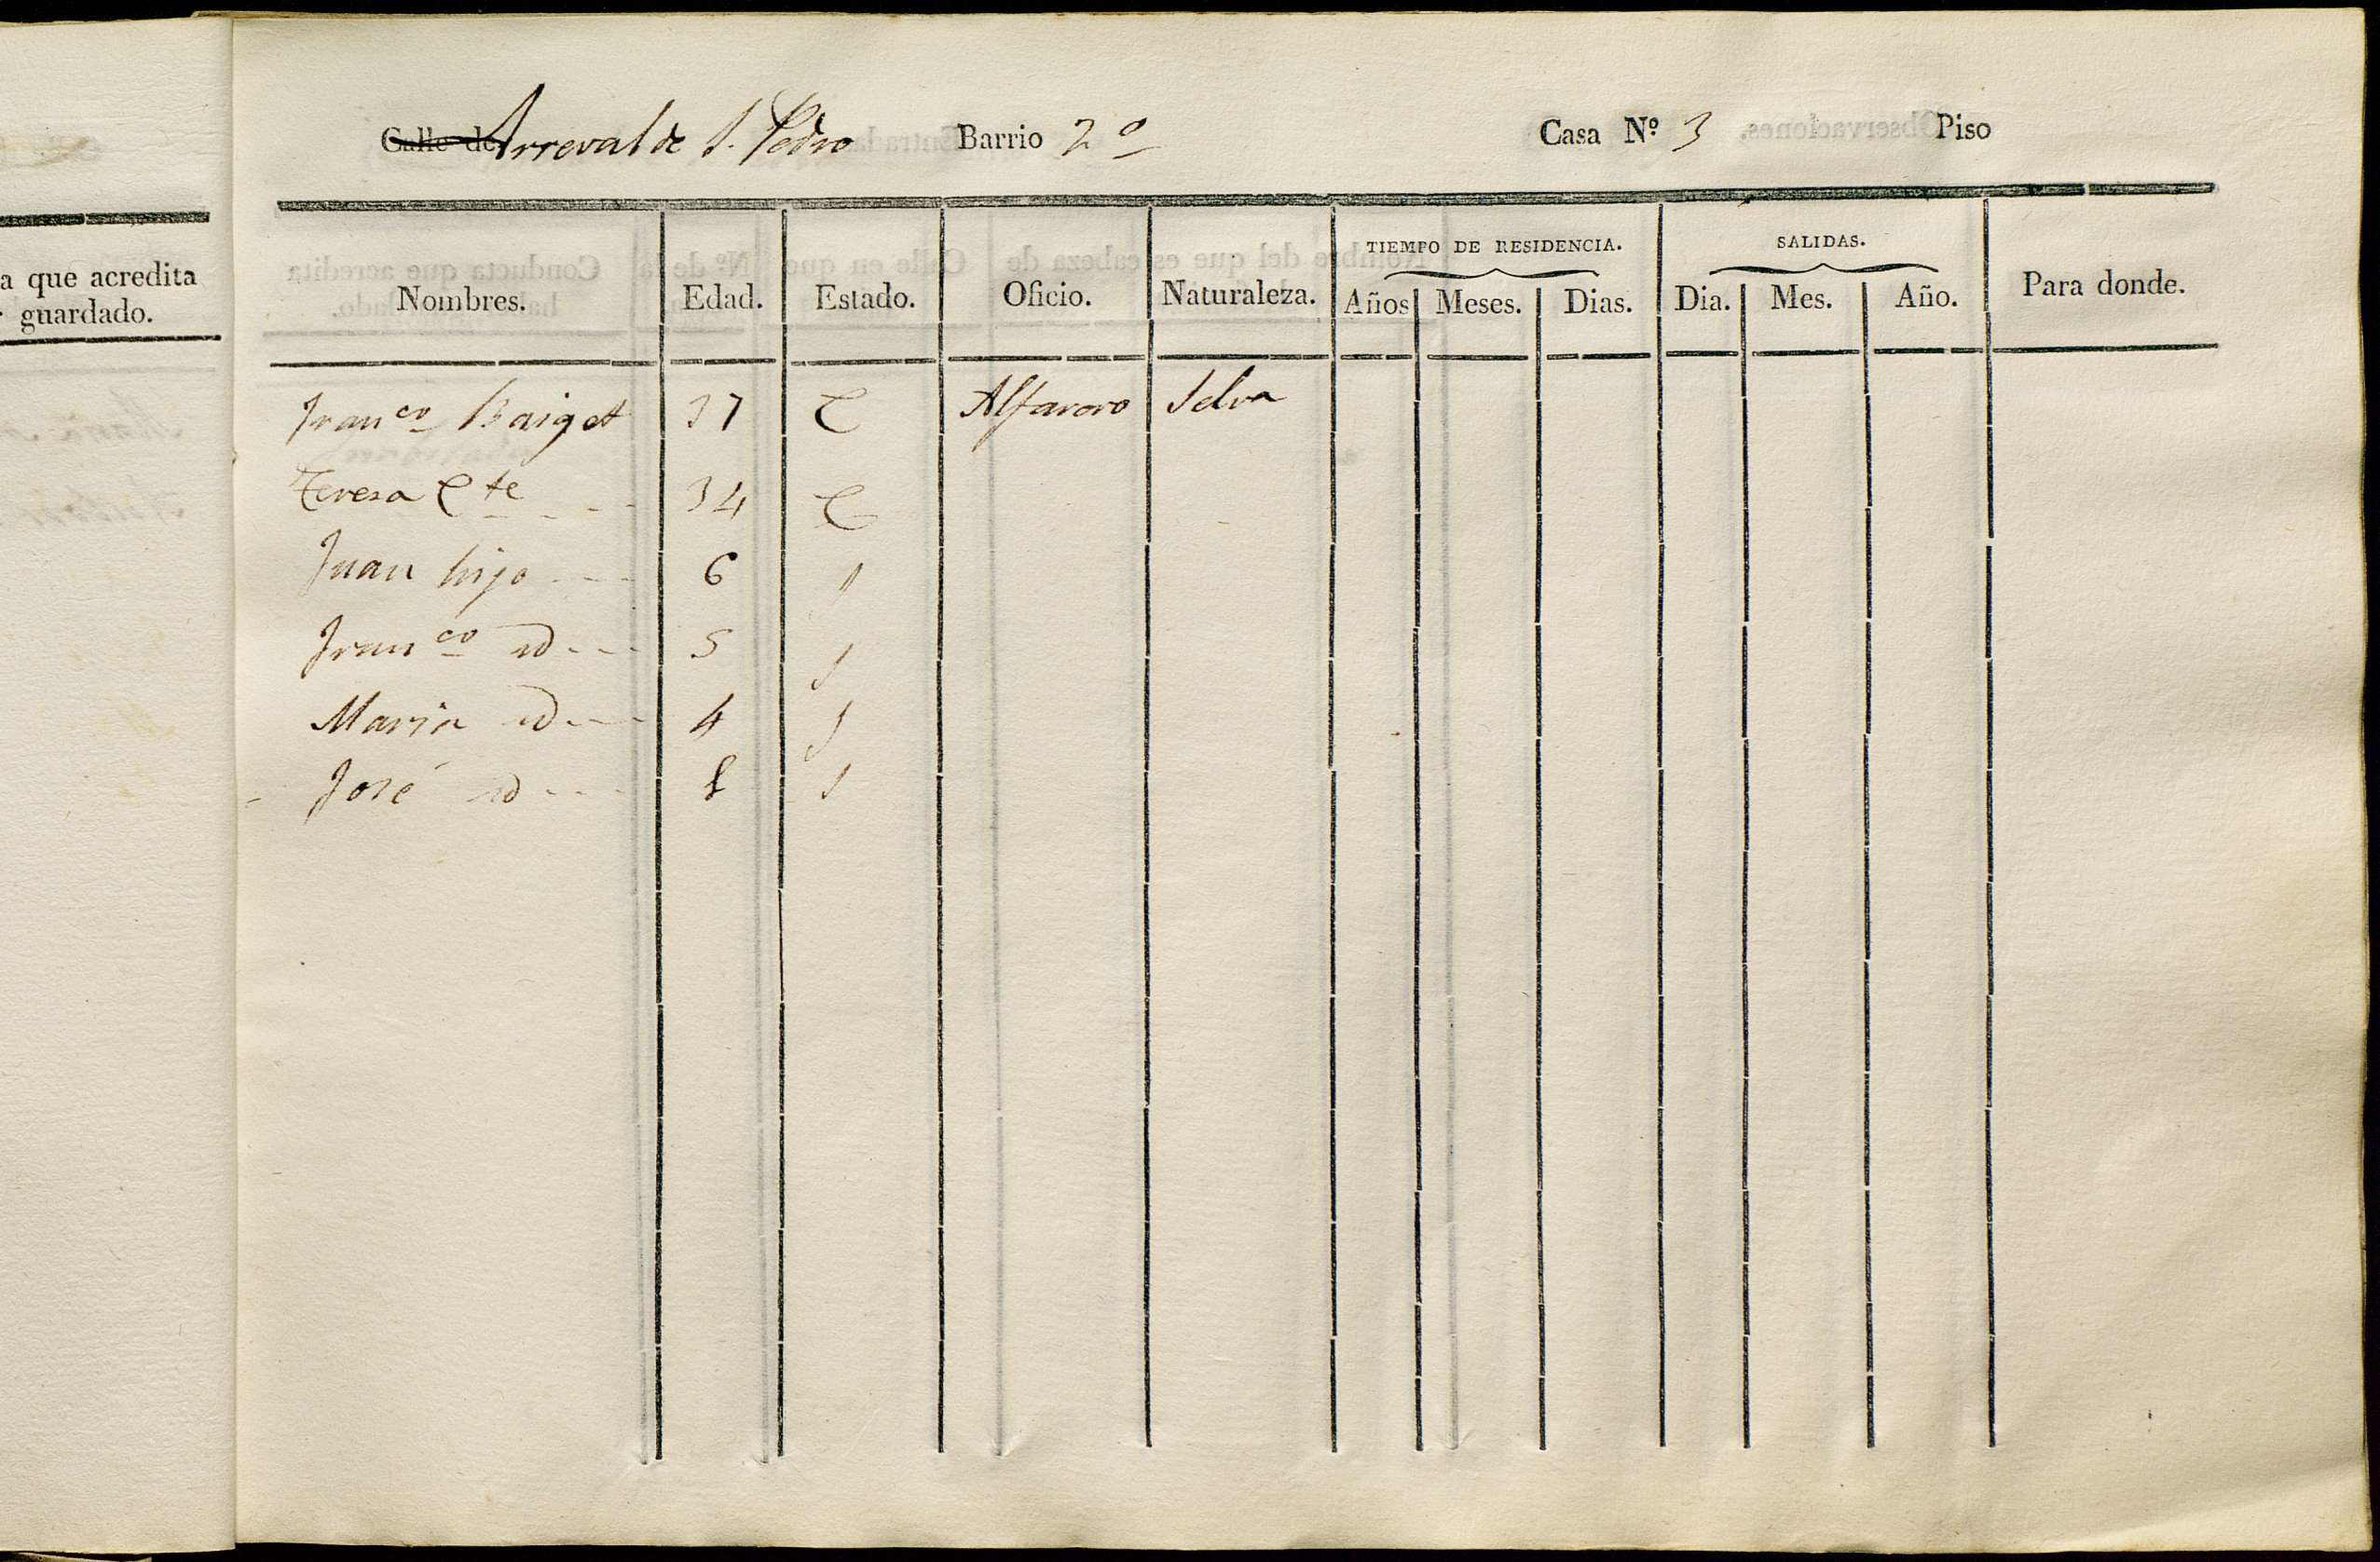 a que acredita
guardado.
Calle de Arreval de S. Pedro Barrio 2º Casa Nº 3 Piso
TIEMPO DE RESIDENCIA. SALIDAS.
Nombres. Edad. Estado. Oficio. Naturaleza. Años Meses. Dias. Dia. Mes. Año. Para donde.
Franco Baiget 37 C Alfarero Selva
Teresa Cte 34 C
Juan hijo 6 S
Franco id 5 S
Maria id 4 S
José id S